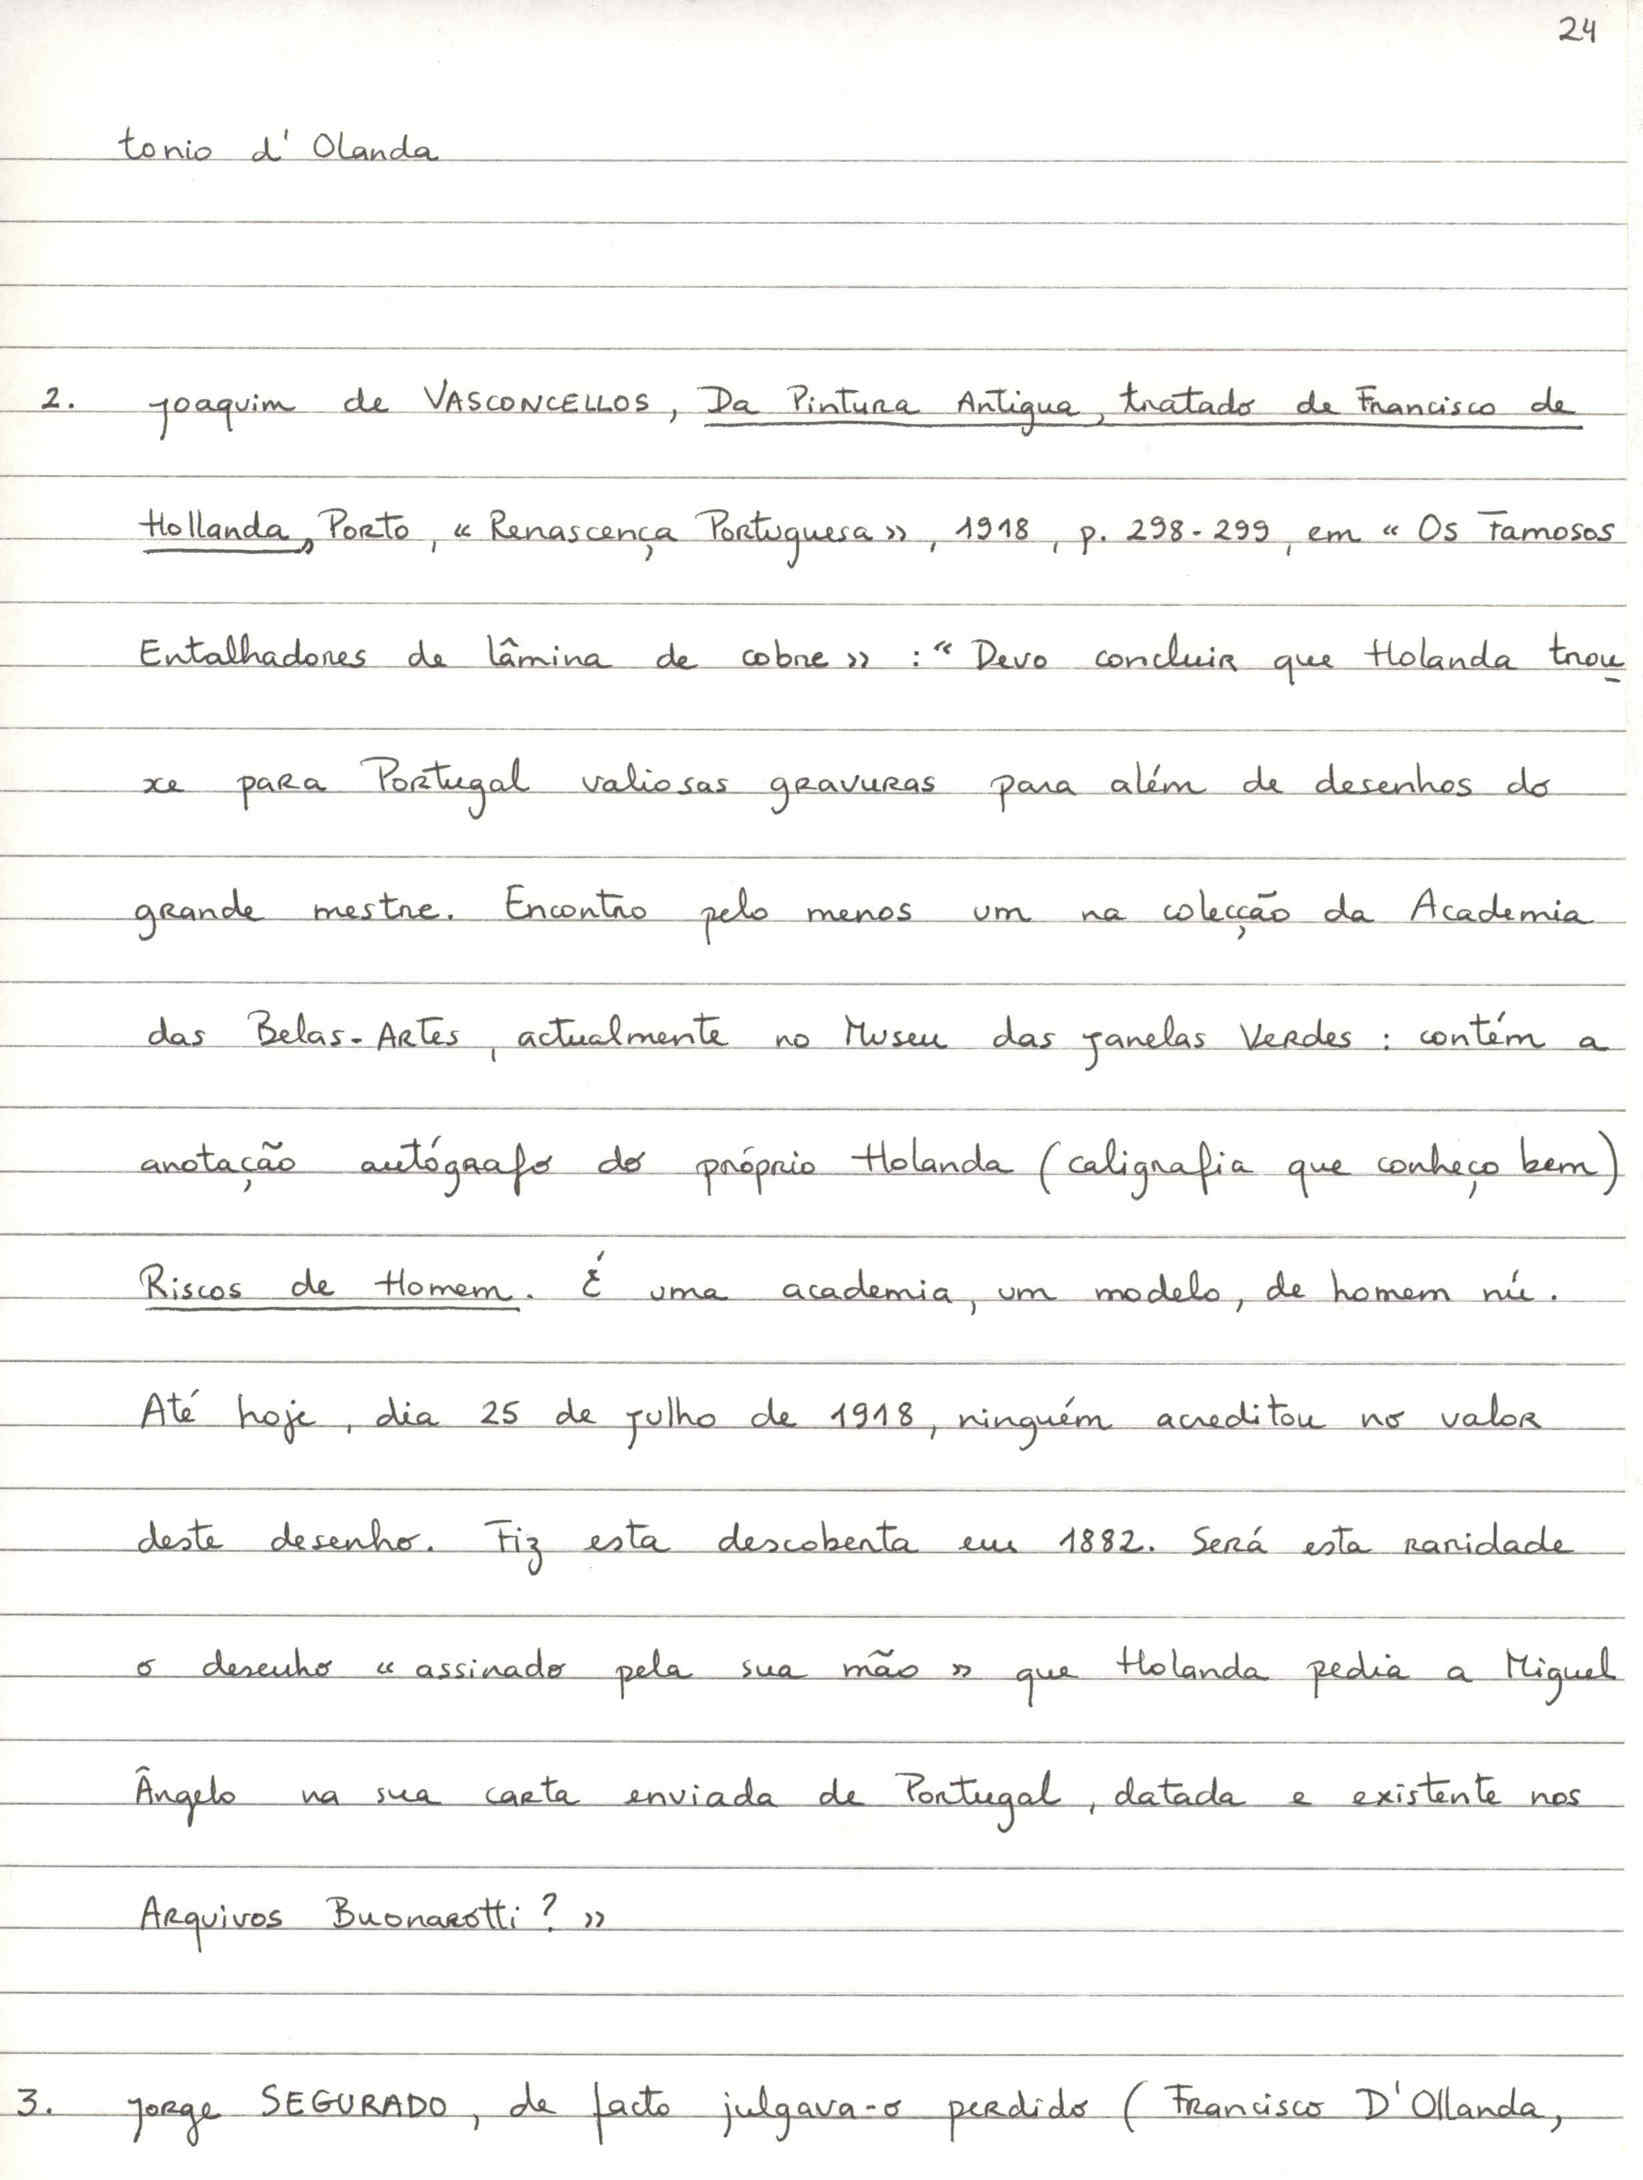 24
tonio d' Olanda
2. Joaquim de VASCONCELLOS, Da Pintura Antigua, tratado de Francisco de
Hollanda, Porto, « Renascença Portuguesa », 1918, p. 298-299, em « Os Famosos
Entalhadores de lâmina de cobre » : « Devo concluir que Holanda trou
xe para Portugal valiosas gravuras para além de desenhos do
grande mestre. Encontro pelo menos um na colecção da Academia
das Belas-Artes, actualmente no Museu das Janelas Verdes : contém a
anotação autógrafo do próprio Holanda (caligrafia que conheço bem)
Riscos de Homem. É uma academia, um modelo, de homem nú.
Até hoje, dia 25 de Julho de 1918, ninguém acreditou no valor
deste desenho. Fiz esta descoberta em 1882. Será esta raridade
o desenho « assinado pela sua mão » que Holanda pedia a Miguel
Ângelo na sua carta enviada de Portugal, datada e existente nos
Arquivos Buonarotti ? »
3. Jorge SEGURADO, de facto julgava-o perdido ( Francisco D'Ollanda,